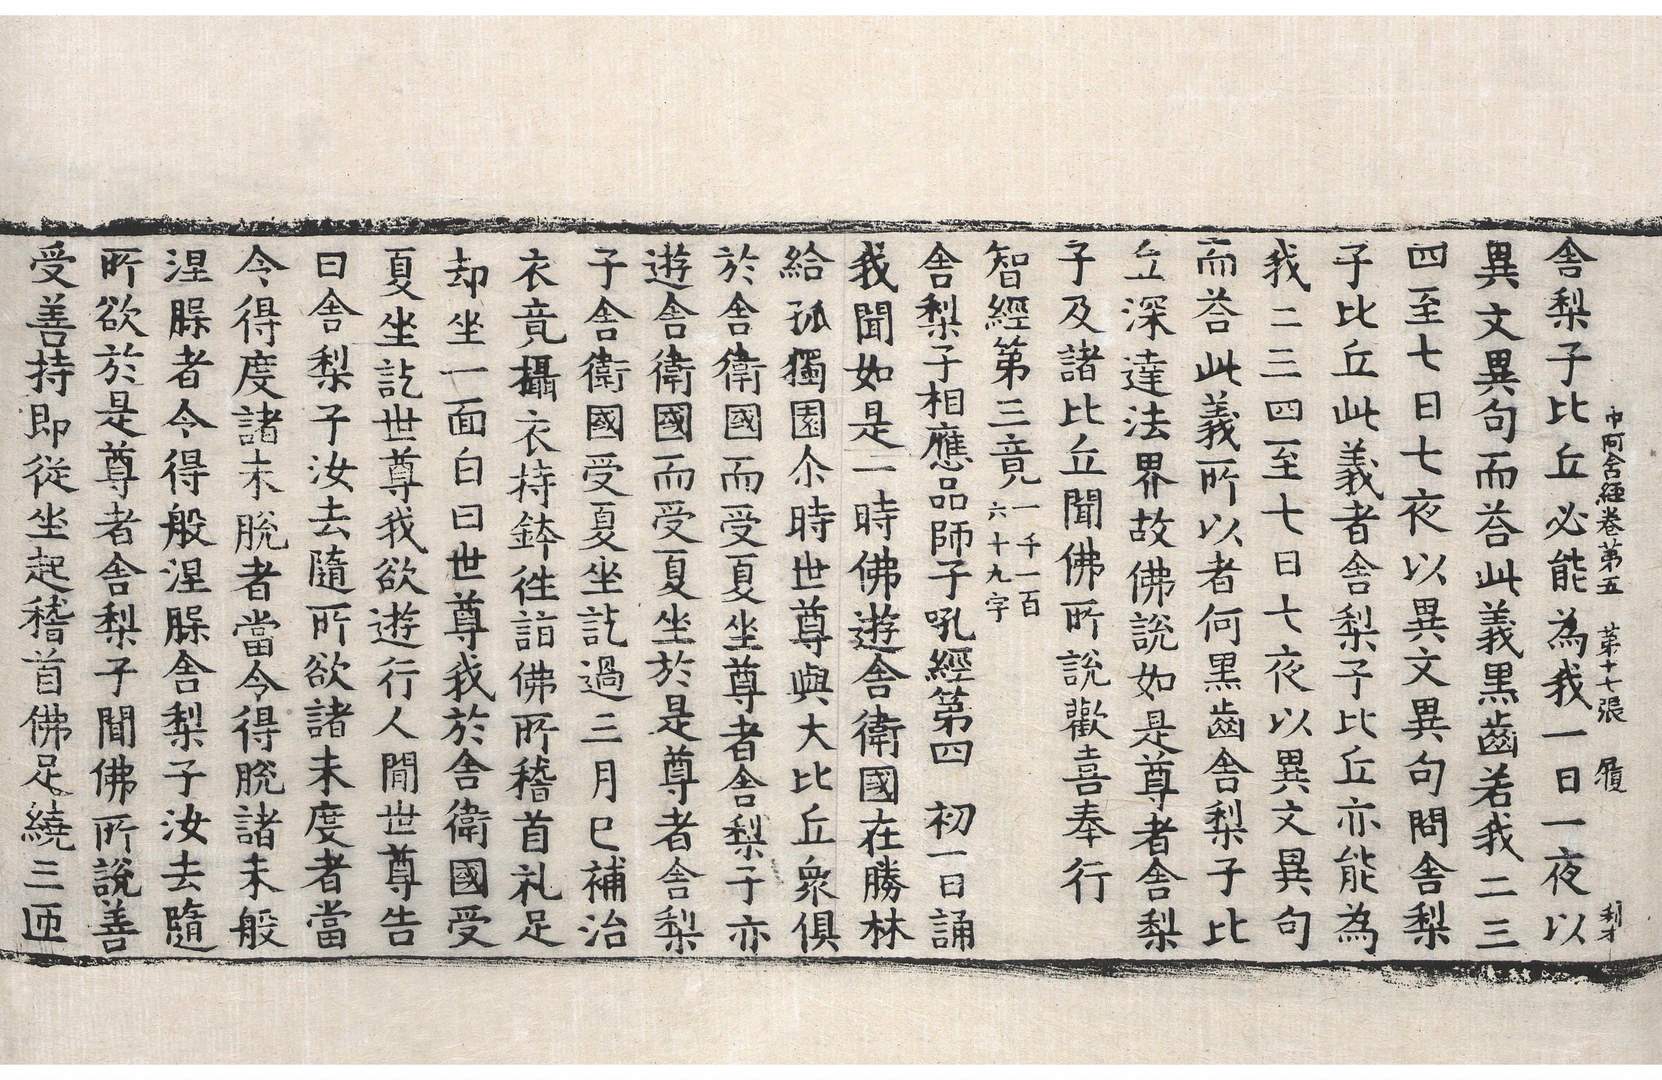 舎梨子比丘必能為我一日一夜以
中阿含經卷第五　第十七張　履
異文異句而荅此義黒齒若我二三
四至七日七夜以異文異句問舎梨
子比丘此義者舎梨子比丘亦能為
我二三四至七日七夜以異文異句
而荅此義所以者何黒齒舎梨子比
丘深達法界故佛說如是尊者舎梨
子及諸比丘聞佛所說歡喜奉行
智經第三竟一千一百六十九字
舎梨子相應品師子吼經第四　初一日誦
我聞如是一時佛遊舎衛國在勝林
給孤獨園尒時世尊與大比丘衆俱
於舎衛國而受夏坐尊者舎梨子亦
遊舎衛國而受夏坐於是尊者舎梨
子舎衛國受夏坐訖過三月已補治
衣竟攝衣持鉢徃詣佛所稽首礼足
却坐一面白曰世尊我於舎衛國受
夏坐訖世尊我欲遊行人間世尊告
曰舎梨子汝去隨所欲諸未度者當
令得度諸未脫者當令得脫諸未般
涅槃者令得般涅槃舎梨子汝去隨
所欲於是尊者舎梨子聞佛所說善
受善持即從坐起稽首佛足繞三匝